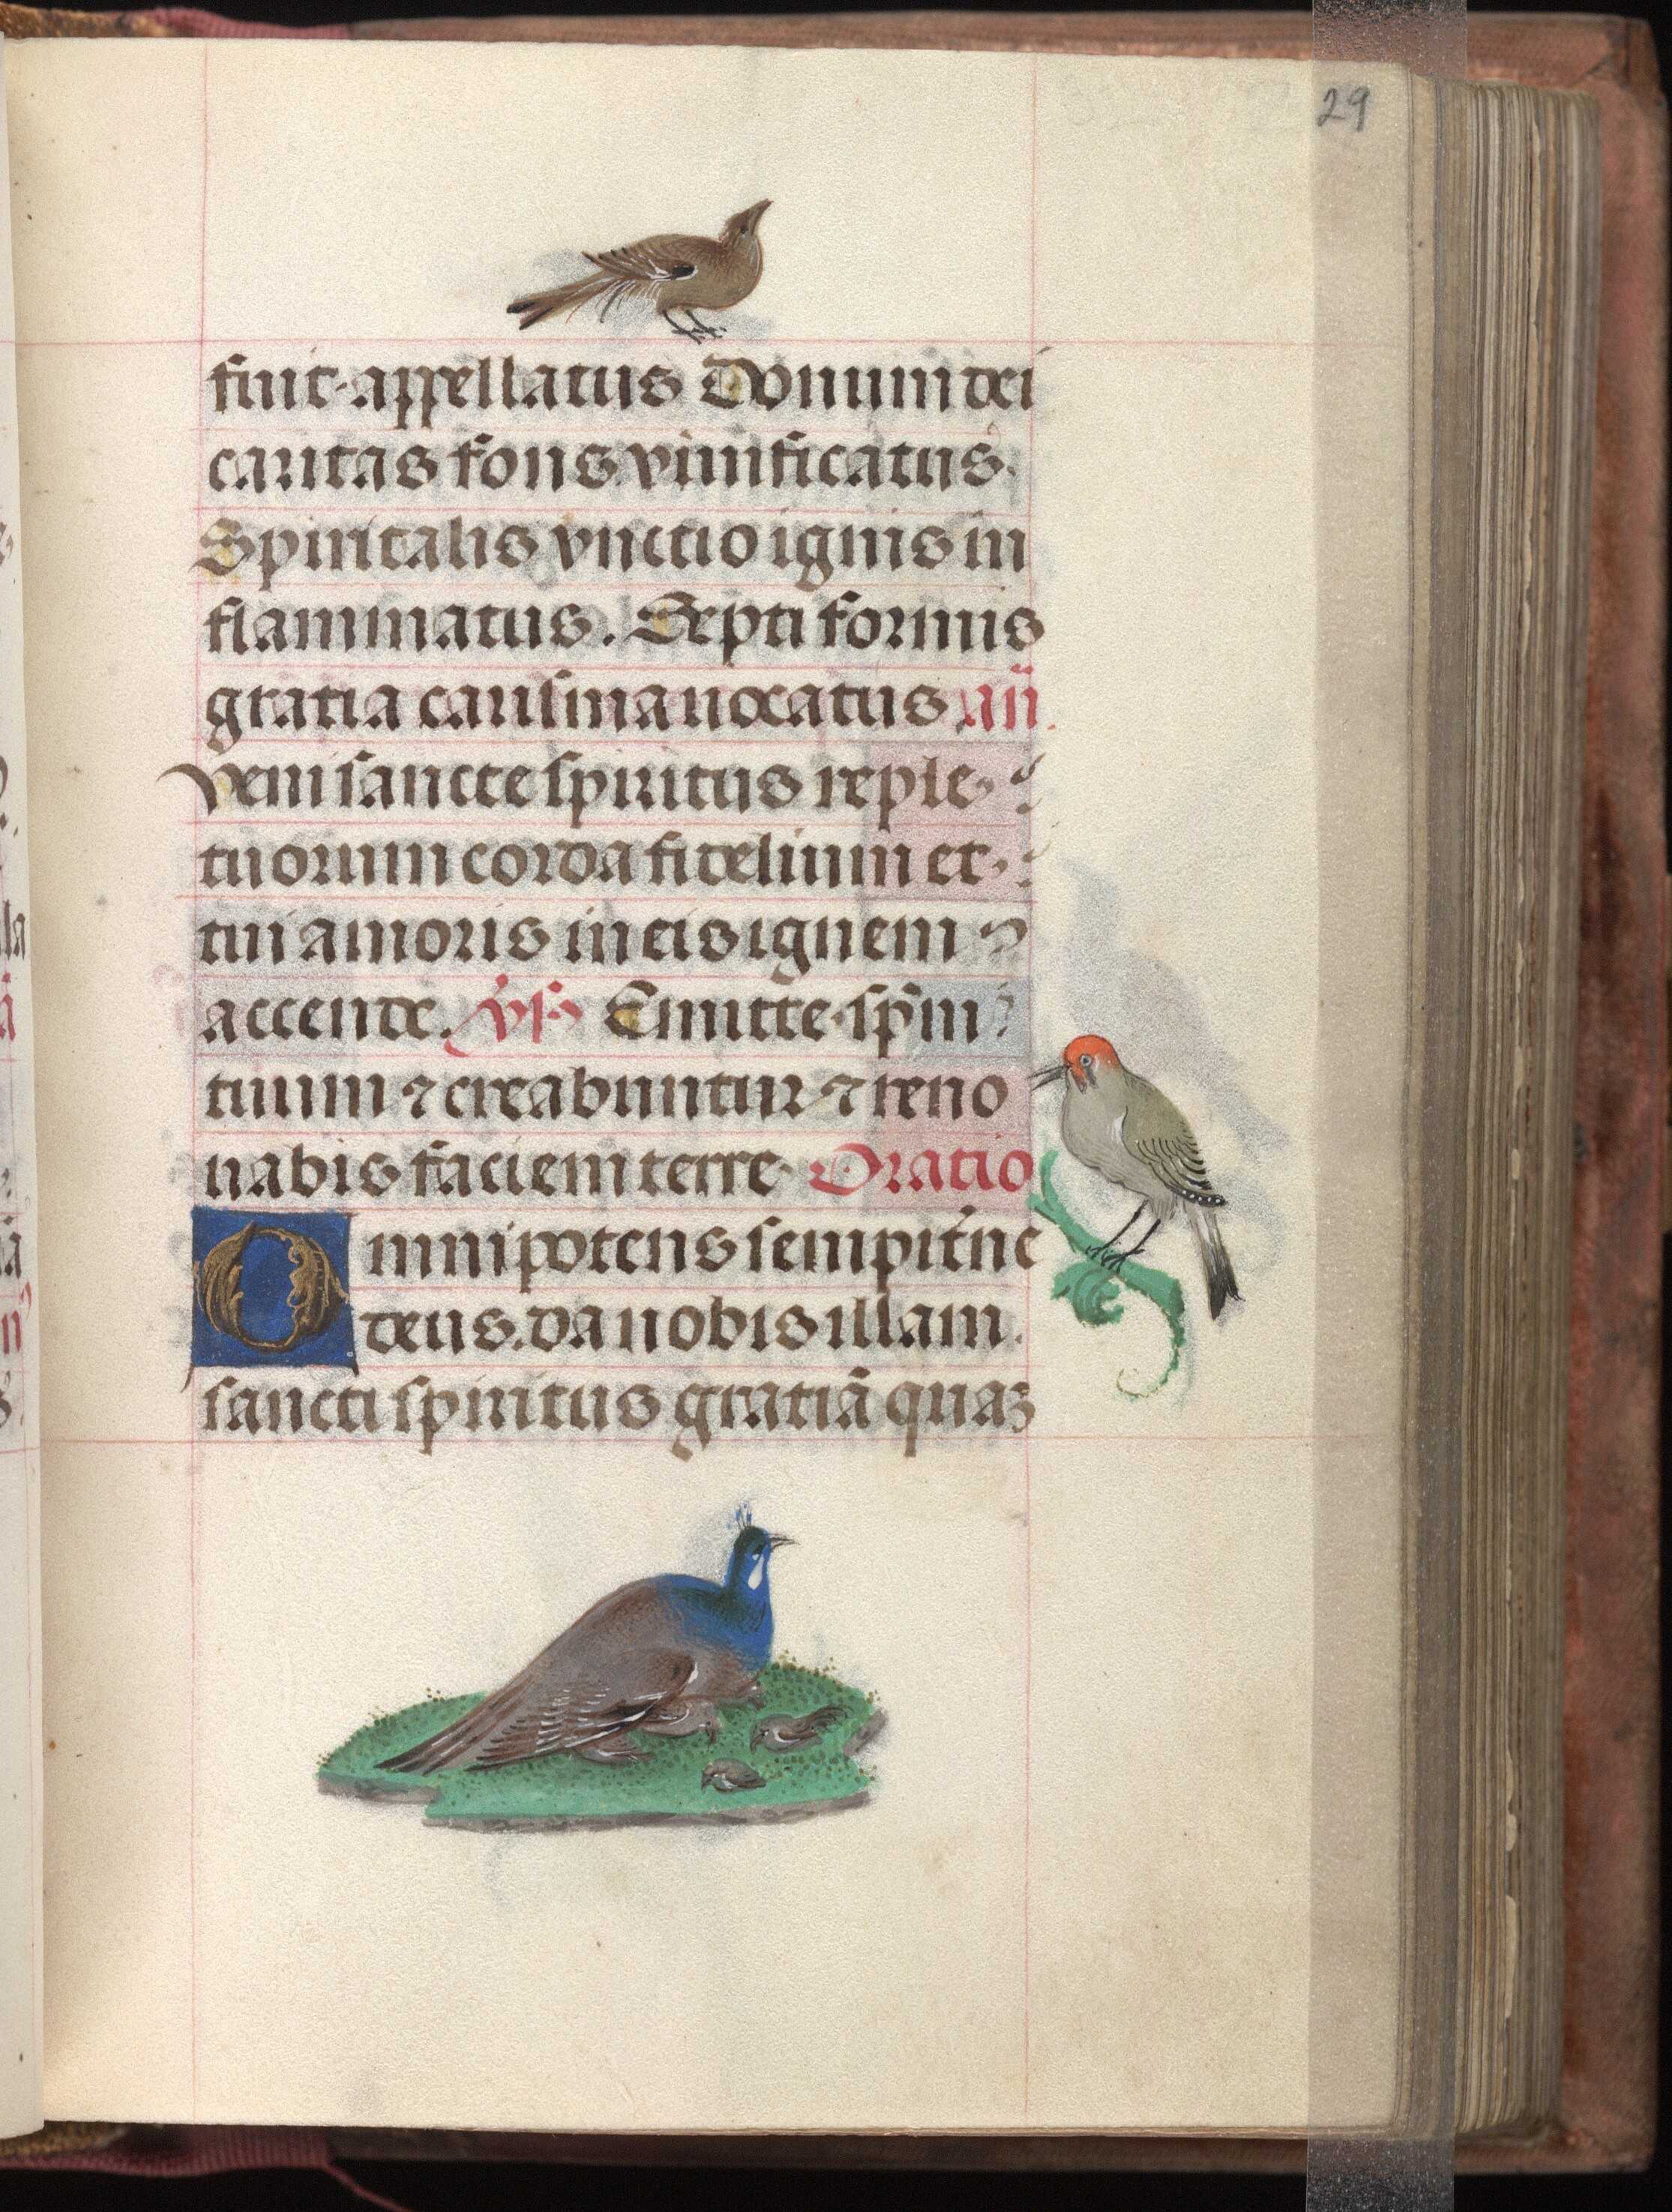 29
fuit appellatus Donum dei
caritas fons viuificatus.
Spiritalis vnctio ignis in
flammatus. Septiformis
gratia carisma uocatus añ.
Veni sancte spiritus reple
tuorum corda fidelium et
tui amoris in eis ignem
accende. v̄s Emitte sp̄m
tuum ⁊ creabuntur ⁊ reno
uabis faciem terre. Oratio
Omnipotens sempit̄ne
deus. da nobis illam.
sancti spiritus gratiā quaꝫ